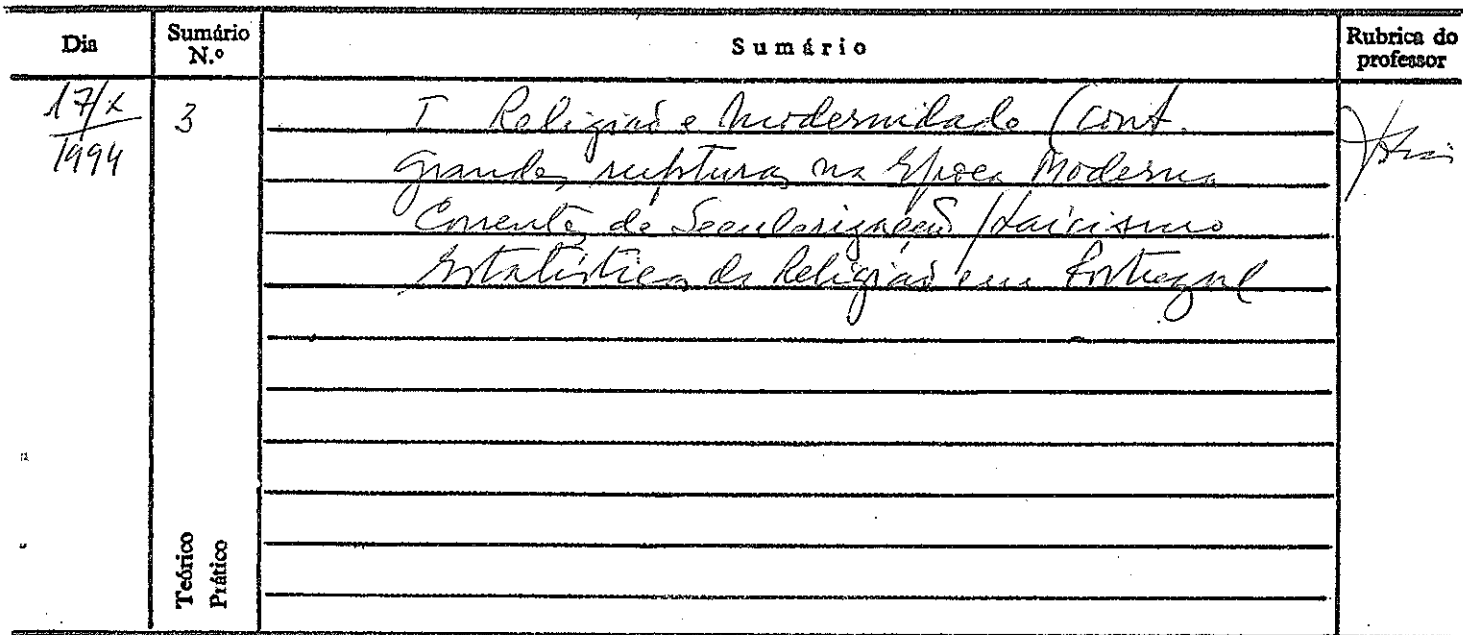 Dia
Sumário N.º
Sumário
Rubrica do professor
17/X/1994
3
I Religião e Modernidade (cont.
Grandes rupturas na Época Moderna
Correntes de Secularização / Laicismo
Estatísticas da Religião em Portugal
Teórico
Prático